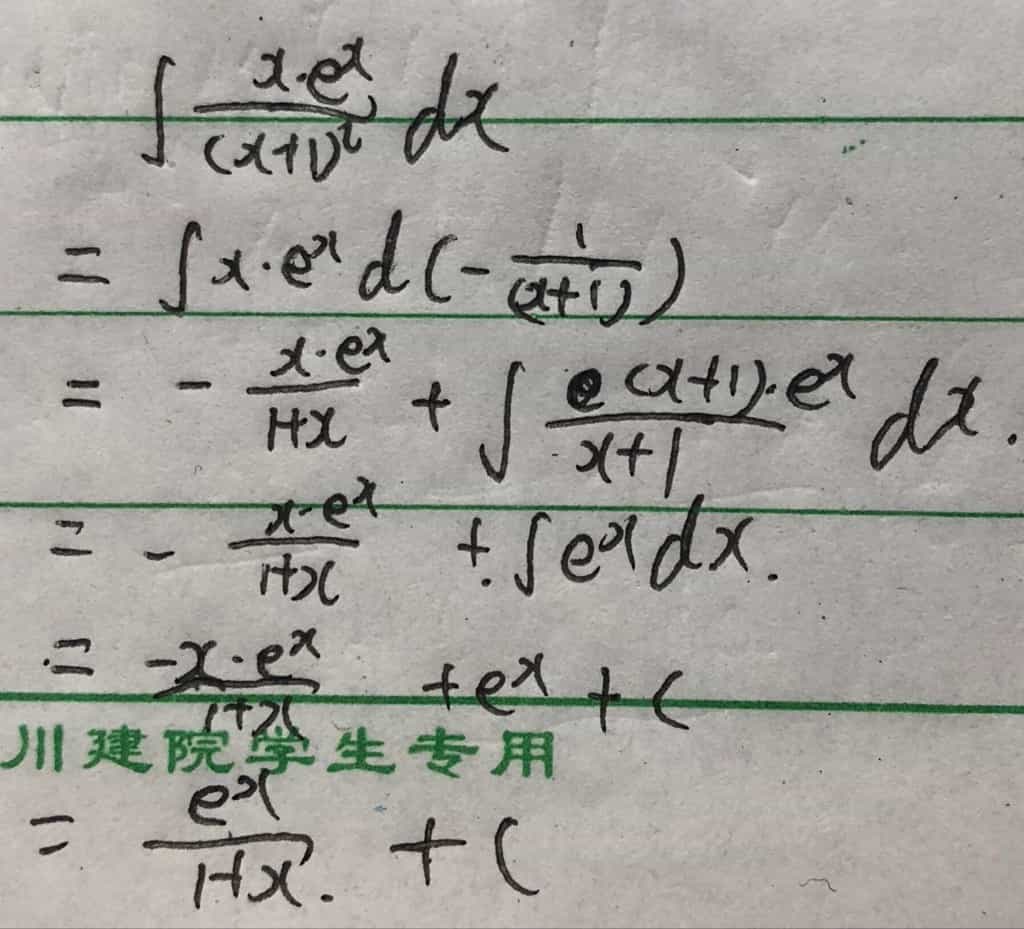 ∫ x·eˣ/(x+1)² dx
= ∫ x·eˣ d(-1/(x+1))
= - x·eˣ/1+x + ∫ (x+1)·eˣ/x+1 dx.
= - x·eˣ/1+x + ∫eˣdx.
= -x·eˣ/1+x + eˣ + C
川建院学生专用
= eˣ/1+x. + C